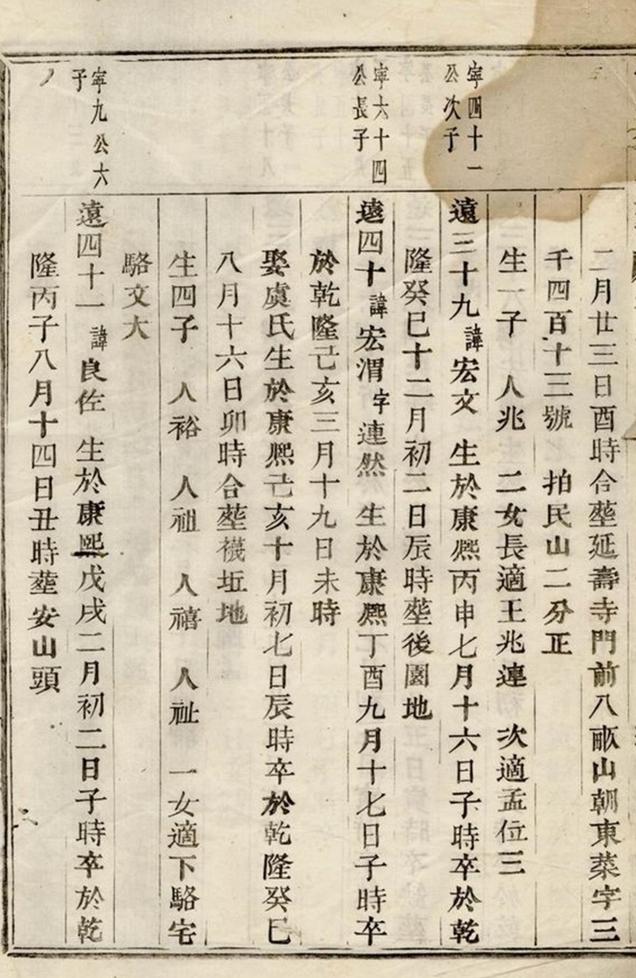 二月廿三日酉時合塟延壽寺門前八畝山朝東菜字三
千四百十三號七拍民山二分正
生一子 人兆 二女長適王兆連 次適孟位三
寕四十一
公次子
遠三十九諱宏文 生於康熈丙申七月十六日子時卒於乾
隆癸巳十二月初二日辰時塟後園地
寕六十四
公長子
遠四十諱宏渭字連然 生於康熈丁酉九月十七日子時卒
於乾隆己亥三月十九日未時
娶虞氏生於康熈己亥十月初七日辰時卒於乾隆癸巳
八月十六日卯時合塟襪坵地
生四子 人裕 人祖 人禧 人祉 一女適下駱宅
駱文大
寕九公六
子
遠四十一諱良佐 生於康熙戊戌二月初二日子時卒於乾
隆丙子八月十四日丑時塟安山頭